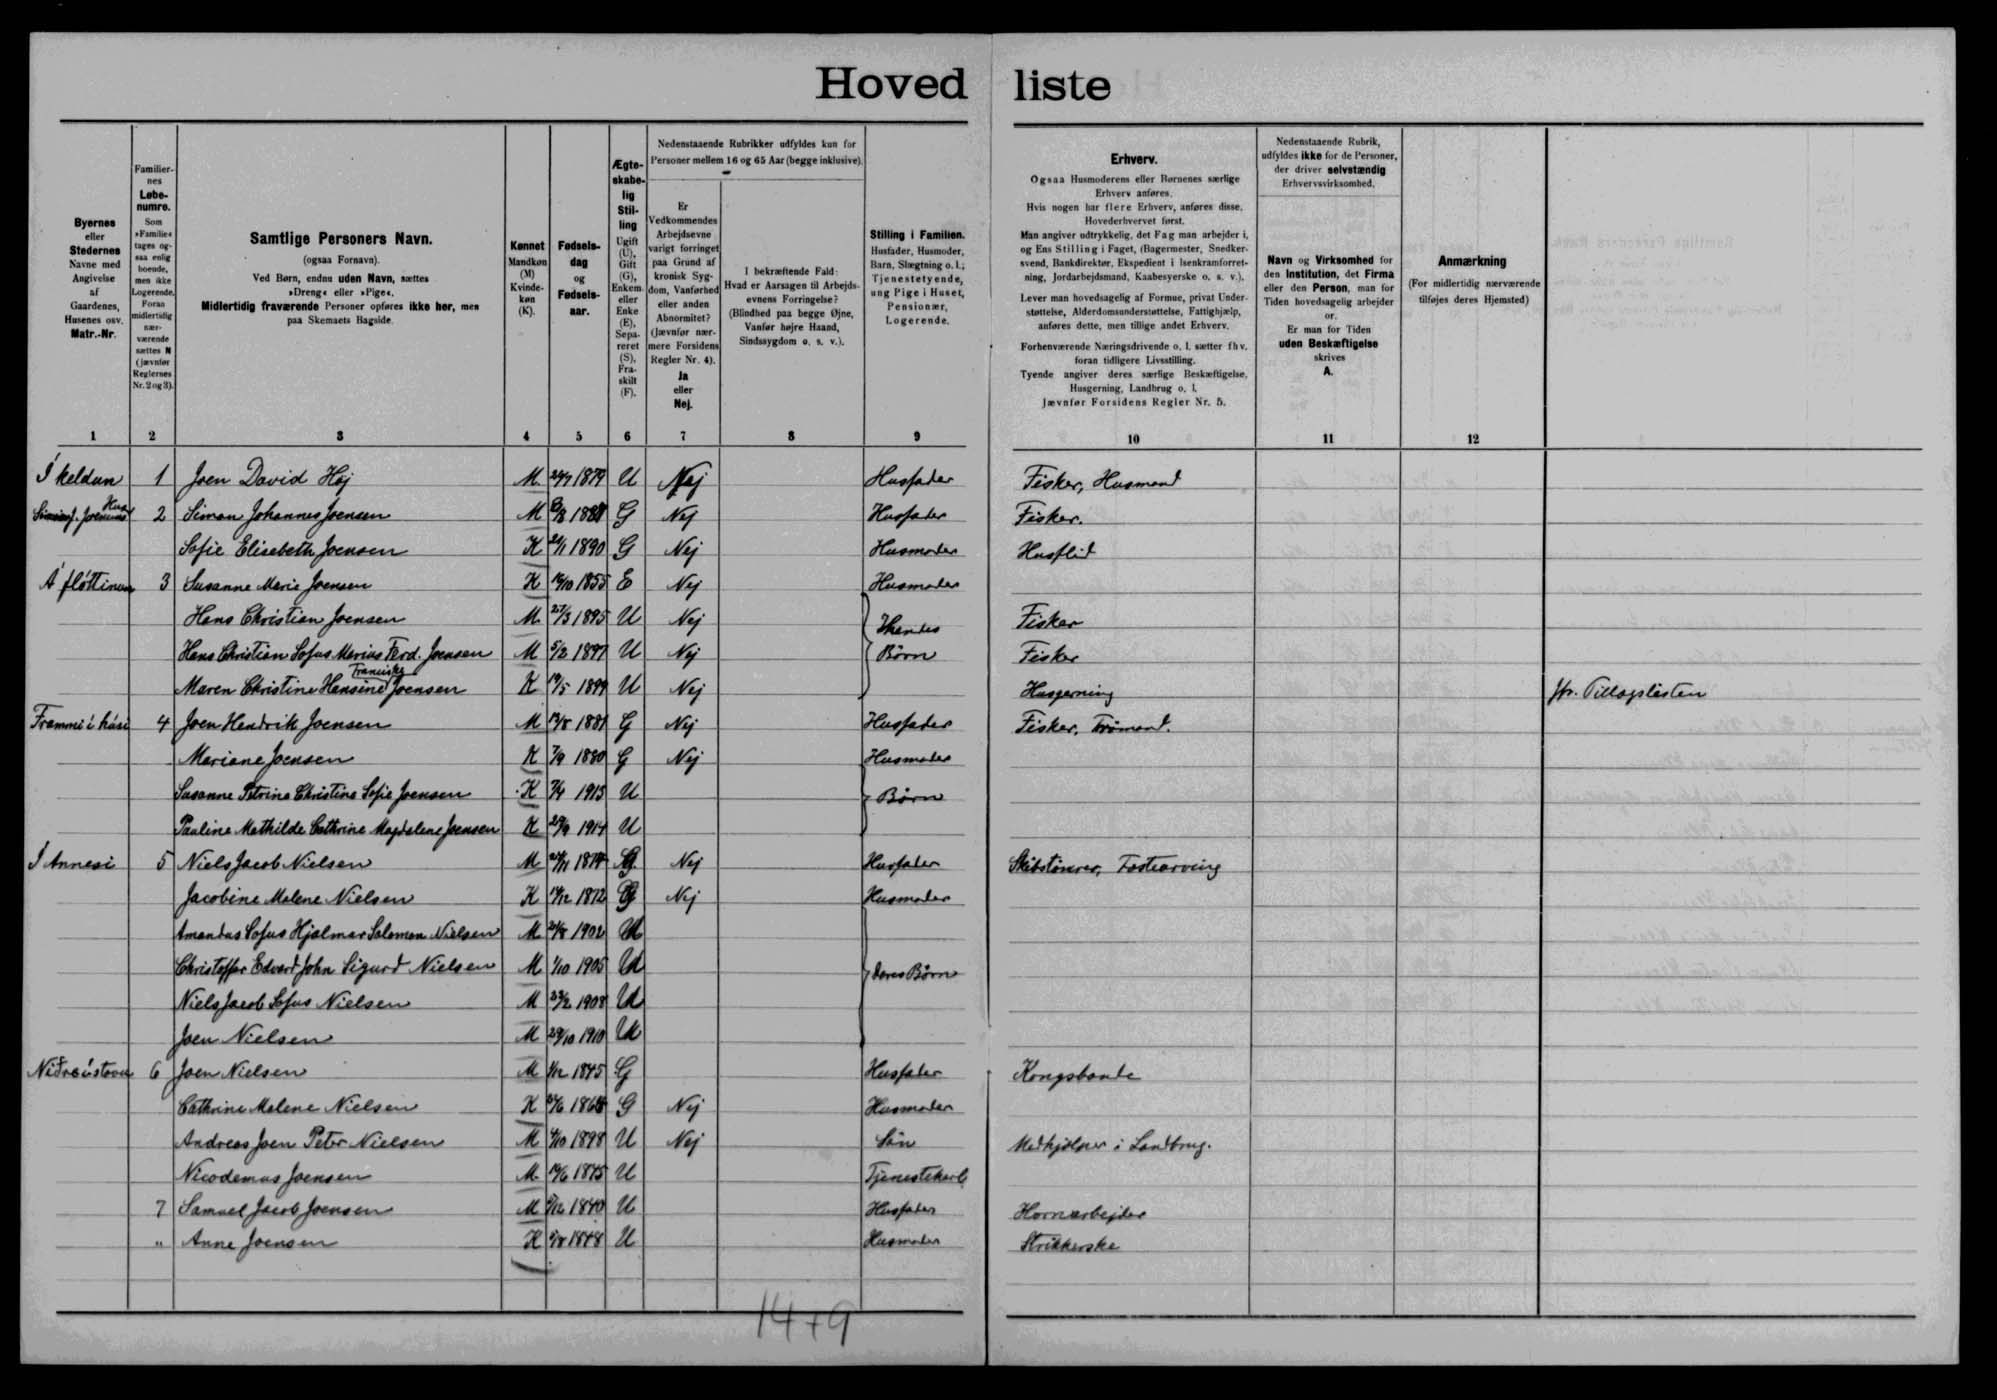 Hoved liste
Byernes
eller
Stedernes
Navne med
Angivelse
af
Gaardenes,
Husenes osv.
Matr.-Nr.
Familier-
nes
Løbe-
numre.
Som
»Familie«
tages og-
saa enlig
boende,
men ikke
Logerende.
Foran
midlertidig
nær-
værende
sættes N
(jævnfør
Reglernes
Nr. 2 og 3).
Samtlige Personers Navn.
(ogsaa Fornavn).
Ved Børn, endnu uden Navn, sættes
»Dreng« eller »Pige«.
Midlertidig fraværende Personer opføres ikke her, men
paa Skemaets Bagside.
Kønnet
Mandkøn
(M)
Kvinde-
køn
(K).
Fødsels-
dag
og
Fødsels-
aar.
Ægte-
skabe-
lig
Stil-
ling
Ugift
(U),
Gift
(G),
Enkem.
eller
Enke
(E),
Sepa-
reret
(S),
Fra-
skilt
(F).
Nedenstaaende Rubrikker udfyldes kun for
Personer mellem 16 og 65 Aar (begge inklusive).
Er
Vedkommendes
Arbejdsevne
varigt forringet
paa Grund af
kronisk Syg-
dom, Vanførhed
eller anden
Abnormitet?
(Jævnfør nær-
mere Forsidens
Regler Nr. 4).
Ja
eller
Nej.
I bekræftende Fald:
Hvad er Aarsagen til Arbejds-
evnens Forringelse?
(Blindhed paa begge Øjne,
Vanfør højre Haand,
Sindssygdom o. s. v.).
Stilling i Familien.
Husfader, Husmoder,
Barn, Slægtning o. l.;
Tjenestetyende,
ung Pige i Huset,
Pensionær,
Logerende.
Erhverv.
Ogsaa Husmoderens eller Børnenes særlige
Erhverv anføres.
Hvis nogen har flere Erhverv, anføres disse.
Hovederhvervet først.
Man angiver udtrykkelig, det Fag man arbejder i,
og Ens Stilling i Faget, (Bagermester, Snedker-
svend, Bankdirektør, Ekspedient i Isenkramforret-
ning, Jordarbejdsmand, Kaabesyerske o. s. v.).
Lever man hovedsagelig af Formue, privat Under-
støttelse, Alderdomsunderstøttelse, Fattighjælp,
anføres dette, men tillige andet Erhverv.
Forhenværende Næringsdrivende o. l. sætter fhv.
foran tidligere Livsstilling.
Tyende angiver deres særlige Beskæftigelse,
Husgerning, Landbrug o. l.
Jævnfør Forsidens Regler Nr. 5.
Nedenstaaende Rubrik,
udfyldes ikke for de Personer,
der driver selvstændig
Erhvervsvirksomhed.
Navn og Virksomhed for
den Institution, det Firma
eller den Person, man for
Tiden hovedsagelig arbejder
for.
Er man for Tiden
uden Beskæftigelse
skrives
A.
Anmærkning
(For midlertidig nærværende
tilføjes deres Hjemsted)
1 2 3 4 5 6 7 8 9 10 11 12
Í keldun 1 Joen David Høj M. 1879 U Nej Husfader Fisker, Husmand
Hus
2 Simon Johannes Joensen M G Nej Husfader Fisker.
Sofie Elisebeth Joensen K 1890 G Nej Husmoder Husflid
Á fløttinum 3 Susanne Marie Joensen K 16/10 1855 E Nej Husmoder
Hans Christian Joensen M. 27/3 1895 U Nej Fisker
Hendes
Hans Christian Sofus Marius Ferd. Joensen M 5/2 1897 U Nej Børn Fisker
Franciska
Maren Christine Hansine Joensen K 19/5 1899 U Nej Husgerning jfr. Tillægslisten
Frammi í húsi 4 Joen Hendrik Joensen M 13/8 1881 G Nej Husfader Fisker, Trømand.
Mariane Joensen K 7/9 1880 G Nej Husmoder
Susanne Petrine Christine Sofie Joensen K 7/4 1913 U Børn
Pauline Mathilde Cathrine Magdalene Joensen K 29/9 1914 U
Í Annesi 5 Niels Jacob Nielsen M G Nej Husfader Skibstømrer,
Jacobine Malene Nielsen K 17/12 1872 G Nej Husmoder
Amandus Sofus Hjalmar Salomon Nielsen M 1902 U
Christoffer Edvard John Sigurd Nielsen M 1/10 1905 U deres Børn
Niels Jacob Sofus Nielsen M 23/2 1908 U
Joen Nielsen M 29/10 1910 U
Niðraístovu 6 Joen Nielsen M 1/12 1845 G Husfader Kongsbonde
Cathrine Malene Nielsen K G Nej Husmoder
Andreas Joen Peter Nielsen M 4/10 1898 U Nej Søn Medhjælper i Landbrug.
Nicodemus Joensen M. 1845 U Tjenestekarl
7 Samuel Jacob Joensen M 1840 U Husfader Hornarbejder
" Anne Joensen K 1848 U Husmoder Strikkerske
14 + 9